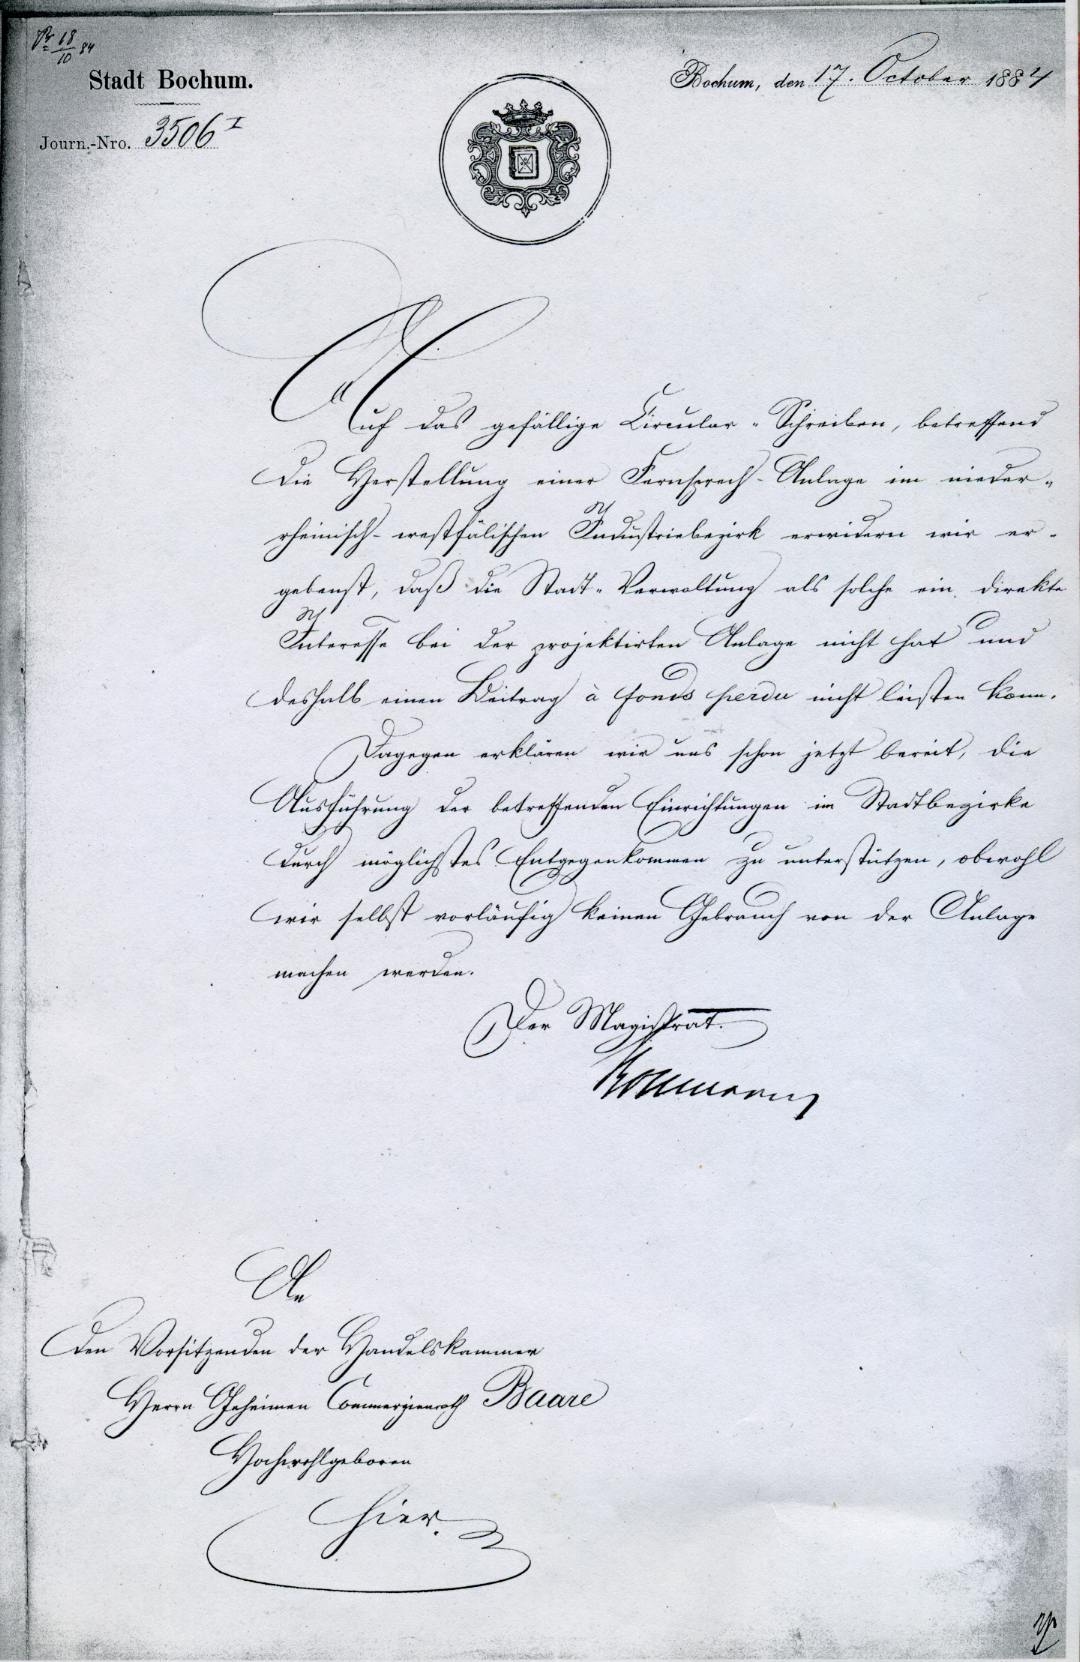 Pr 18/10 84
Stadt Bochum.
Bochum, den 17. October 1884
Journ.-Nro. 3506 I
Auf das gefällige Circular-Schreiben, betreffend
die Herstellung einer Fernsprech-Anlage im nieder-
rheinisch-westfälischen Industriebezirk erwidern wir er-
gebenst, daß die Stadt-Verwaltung als solche ein direkte
Interesse bei der projektirten Anlage nicht hat und
deshalb einen Beitrag à fonds perdu nicht leisten kann.
Dagegen erklären wir uns schon jetzt bereit, die
Ausführung der betreffenden Einrichtungen im Stadtbezirke
durch möglichstes Entgegenkommen zu unterstützen, obwohl
wir selbst vorläufig keinen Gebrauch von der Anlage
machen werden.
Der Magistrat.
Bollmann
An
den Vorsitzenden der Handelskammer
Herrn Geheimen Commerzienrath Baare
Hochwohlgeboren
hier.